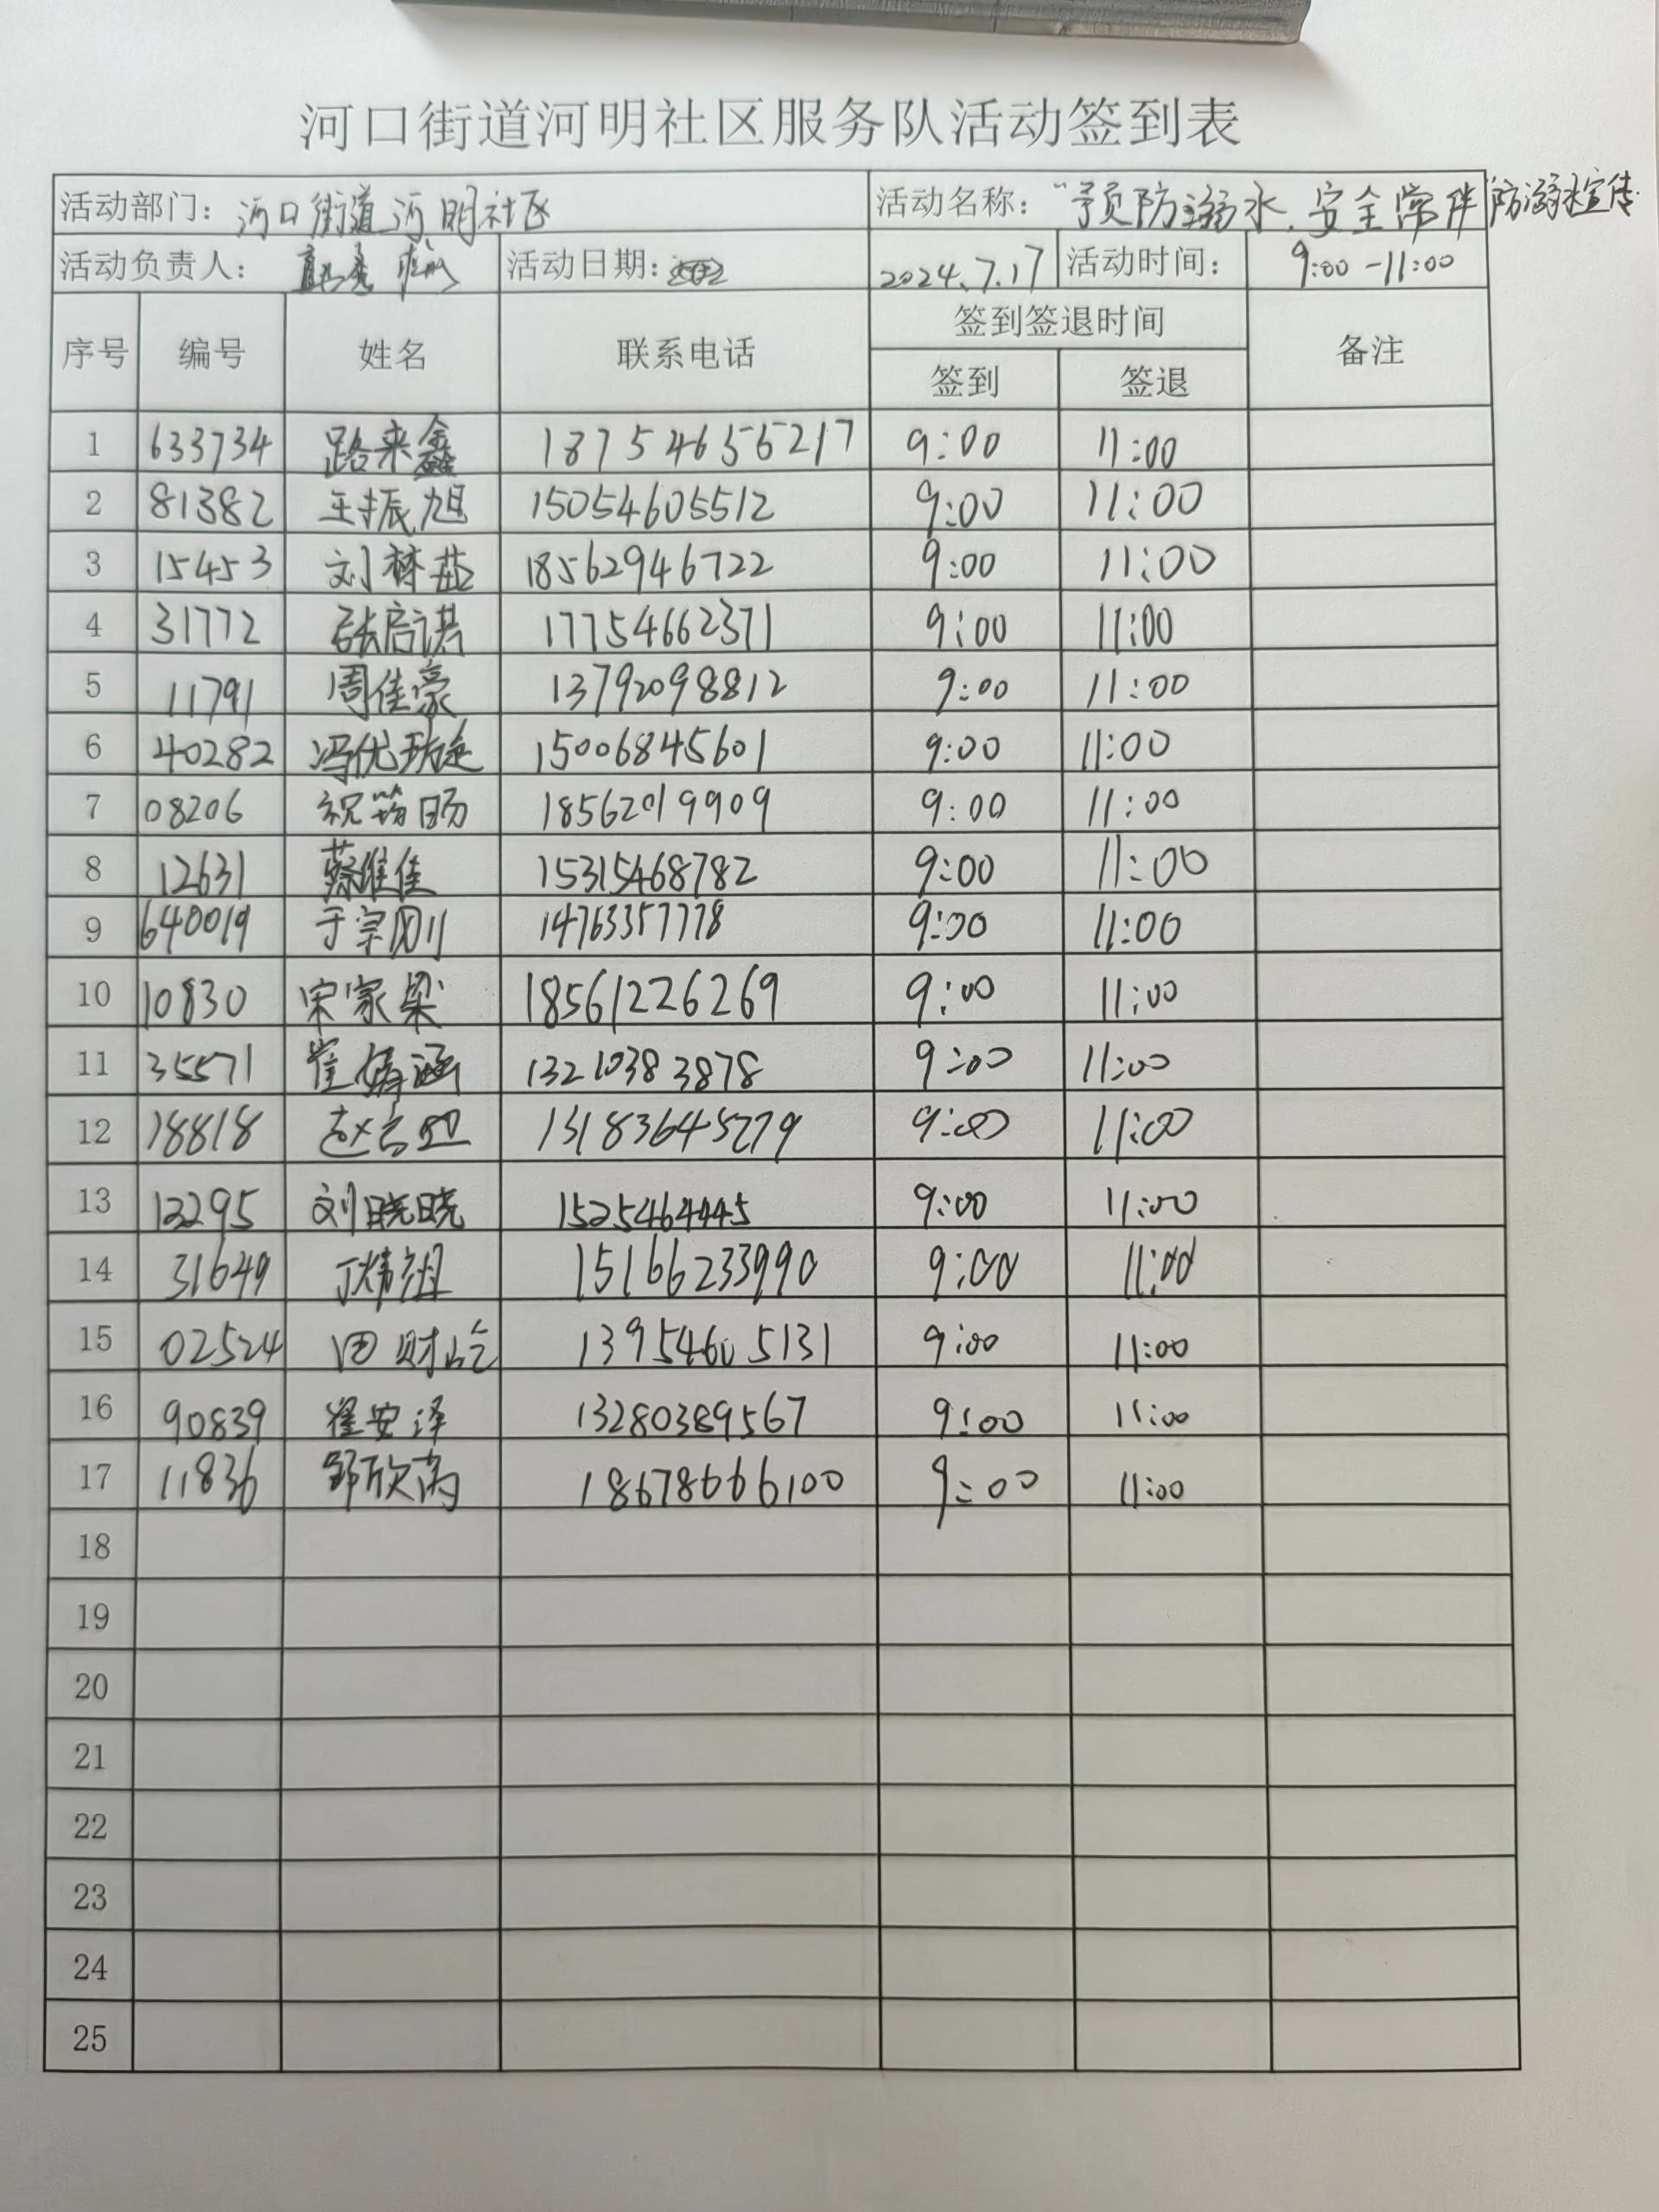 河口街道河明社区服务队活动签到表
活动部门: 河口街道河明社区 活动名称: "预防溺水.安全常伴"防溺水宣传
活动负责人: 活动日期: 2024.7.17 活动时间: 9:00-11:00
序号 编号 姓名 联系电话 签到签退时间 备注
签到 签退
1 633734 路来鑫 18754656217 9:00 11:00
2 81382 王振旭 15054605512 9:00 11:00
3 15453 刘林茹 18562946722 9:00 11:00
4 31772 张启祺 17754662371 9:00 11:00
5 11791 周佳豪 13792098812 9:00 11:00
6 40282 冯优 15006845601 9:00 11:00
7 08206 祝筠旸 18562019909 9:00 11:00
8 12631 蔡维佳 15315468782 9:00 11:00
9 640019 于宗冈川 14763357778 9:00 11:00
10 10830 宋家梁 18561226269 9:00 11:00
11 35571 崔 涵 13210383878 9:00 11:00
12 18818 赵 13183645279 9:00 11:00
13 12295 刘晓晓 1525464445 9:00 11:00
14 31649 丁炜祖 15166233990 9:00 11:00
15 02524 田财 13954605131 9:00 11:00
16 90839 翟安泽 13280389567 9:00 11:00
17 11836 邹欣芮 18678666100 9:00 11:00
18
19
20
21
22
23
24
25